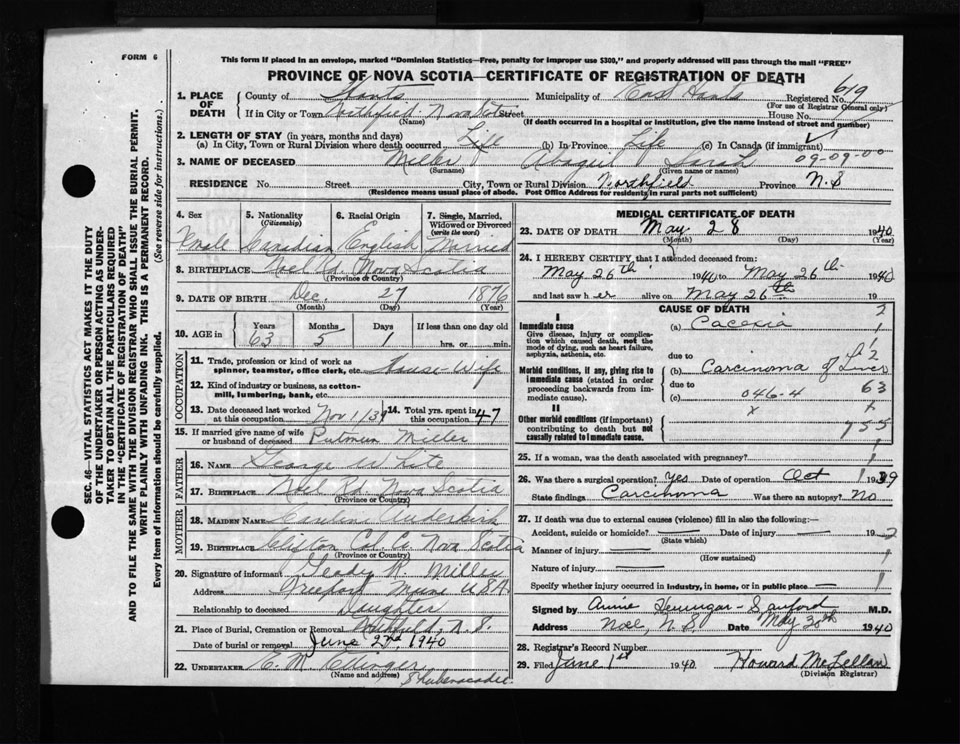 FORM 6
This form if placed in an envelope, marked "Dominion Statistics—Free, penalty for improper use $300," and properly addressed will pass through the mail "FREE"
PROVINCE OF NOVA SCOTIA—CERTIFICATE OF REGISTRATION OF DEATH
1. PLACE OF DEATH County of Hants Municipality of East Hants Registered No. 619
(For use of Registrar General only)
If in City or Town Northfield Nova Scotia Street House No.
(Name) (If death occurred in a hospital or institution, give the name instead of street and number)
2. LENGTH OF STAY (in years, months and days)
(a) In City, Town or Rural Division where death occurred Life (b) In Province Life (c) In Canada (if immigrant)
3. NAME OF DECEASED Miller Abagail Sarah 09-09-00
(Surname) (Given name or names)
RESIDENCE No. Street City, Town or Rural Division Northfield Province N.S
(Residence means usual place of abode. Post Office Address for residents in rural parts not sufficient)
4. Sex 5. Nationality (Citizenship) 6. Racial Origin 7. Single, Married, Widowed or Divorced (write the word)
Female Canadian English Married
8. BIRTHPLACE Noel Rd. Nova Scotia
(Province or Country)
9. DATE OF BIRTH Dec. 27 1876
(Month) (Day) (Year)
10. AGE in Years Months Days If less than one day old
63 5 1 hrs. or min.
OCCUPATION
11. Trade, profession or kind of work as spinner, teamster, office clerk, etc. House-Wife
12. Kind of industry or business, as cotton-mill, lumbering, bank, etc.
13. Date deceased last worked at this occupation Nov 1/39 14. Total yrs. spent in this occupation 47
15. If married give name of wife or husband of deceased Putman Miller
FATHER
16. NAME George White
17. BIRTHPLACE Noel Rd. Nova Scotia
(Province or Country)
MOTHER
18. MAIDEN NAME
19. BIRTHPLACE Clifton Col. Co. Nova Scotia
(Province or Country)
20. Signature of informant Glady R. Miller
Address Mass U.S.A.
Relationship to deceased Daughter
21. Place of Burial, Cremation or Removal Northfield, N.S.
Date of burial or removal June 2nd, 1940
22. UNDERTAKER E. M. Ettinger
(Name and address) Shubenacadie.
MEDICAL CERTIFICATE OF DEATH
23. DATE OF DEATH May 28 1940
(Month) (Day) (Year)
24. I HEREBY CERTIFY, that I attended deceased from:
May 26th 1940 to May 26th 1940
and last saw her alive on May 26th 19
CAUSE OF DEATH 2
I
Immediate cause (a) Cacexia 1
Give disease, injury or complication which caused death, not the mode of dying, such as heart failure, asphyxia, asthenia, etc.
due to
Morbid conditions, if any, giving rise to immediate cause (stated in order proceeding backwards from immediate cause).
(b) Carcinoma of Liver
due to 63
(c) 046-4
II x
Other morbid conditions (if important) contributing to death but not causally related to immediate cause.
25. If a woman, was the death associated with pregnancy?
26. Was there a surgical operation? yes Date of operation Oct 1939
State findings Carcinoma Was there an autopsy? No
27. If death was due to external causes (violence) fill in also the following:—
Accident, suicide or homicide? — Date of injury — 19
(State which)
Manner of injury —
(How sustained)
Nature of injury —
Specify whether injury occurred in industry, in home, or in public place —
Signed by Annie Hennigar-Sanford M.D.
Address Noel, N.S. Date May 30th 1940
28. Registrar's Record Number
29. Filed June 1st 1940 Howard McLellan
(Division Registrar)
SEC. 46—VITAL STATISTICS ACT MAKES IT THE DUTY
OF THE UNDERTAKER OR PERSON ACTING AS UNDER-
TAKER TO OBTAIN ALL THE PARTICULARS REQUIRED
IN THE "CERTIFICATE OF REGISTRATION OF DEATH"
AND TO FILE THE SAME WITH THE DIVISION REGISTRAR WHO SHALL ISSUE THE BURIAL PERMIT.
WRITE PLAINLY WITH UNFADING INK. THIS IS A PERMANENT RECORD.
Every item of Information should be carefully supplied. (See reverse side for instructions.)